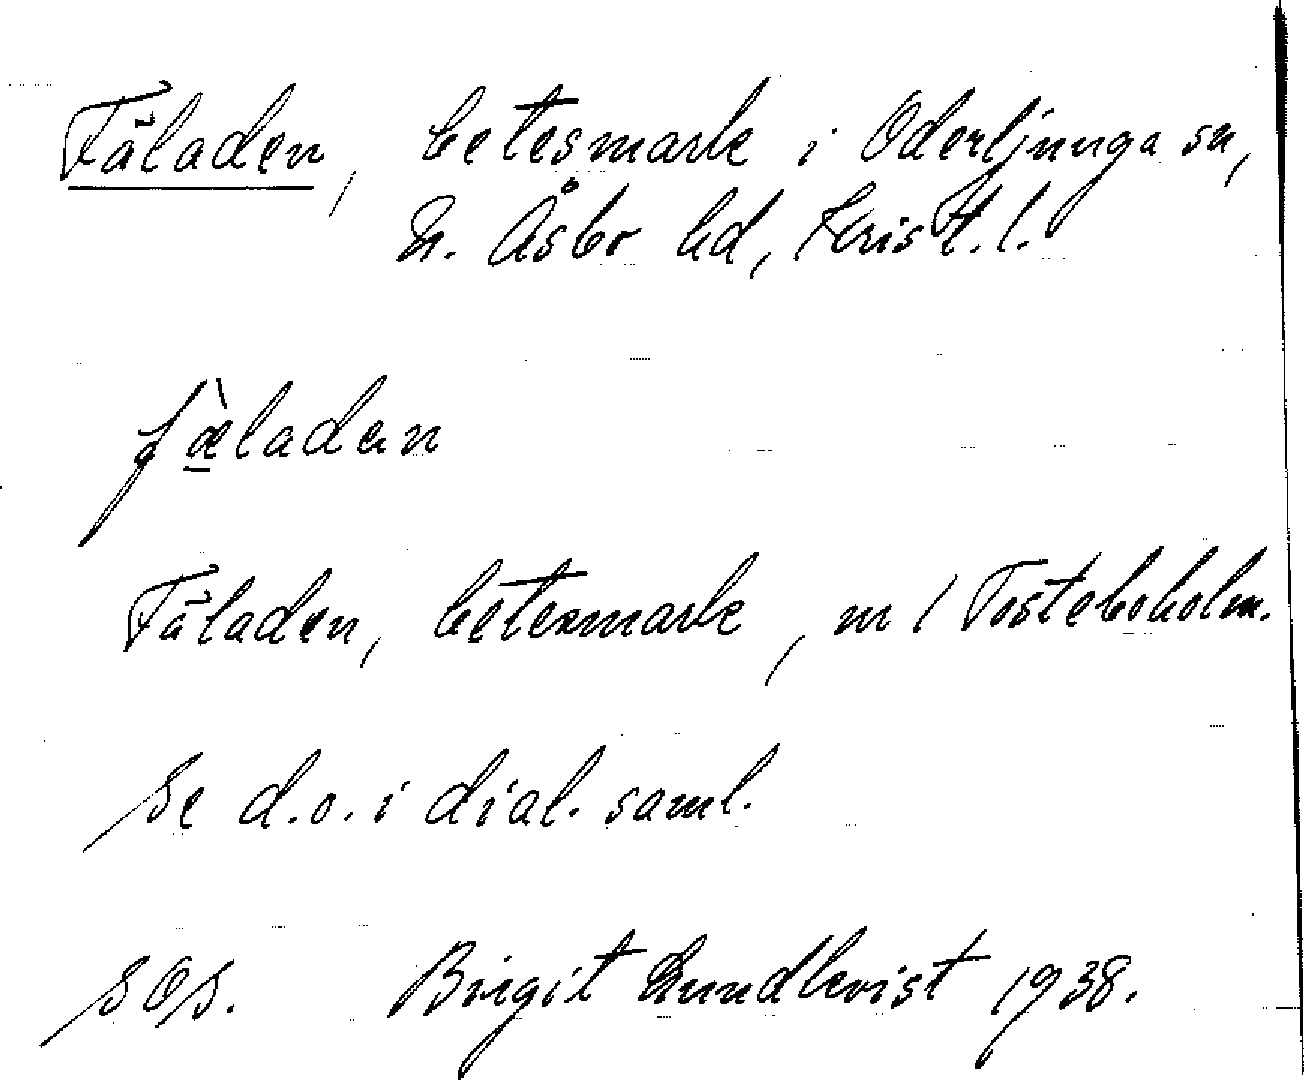 Fäladen, betesmark i Oderljunga sn,
N. Åsbo hd, Krist. l.
fæ̀ladan
Fäladen, betesmark, m / Tosteboholm.
Se d.o. i dial. saml.
SOS. Birgit Lundkvist 1938.